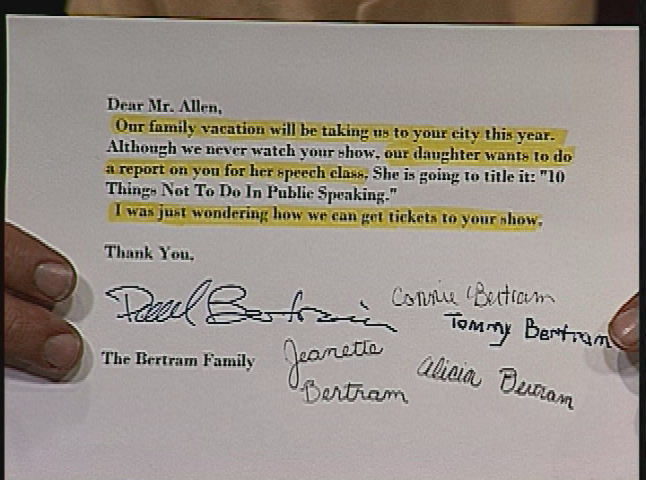 Dear Mr. Allen,
Our family vacation will be taking us to your city this year.
Although we never watch your show, our daughter wants to do
a report on you for her speech class. She is going to title it: "10
Things Not To Do In Public Speaking."
I was just wondering how we can get tickets to your show.
Thank You,
Paul Bertram
Connie Bertram
Tommy Bertram
The Bertram Family
Jeanette
Bertram
Alicia Bertram